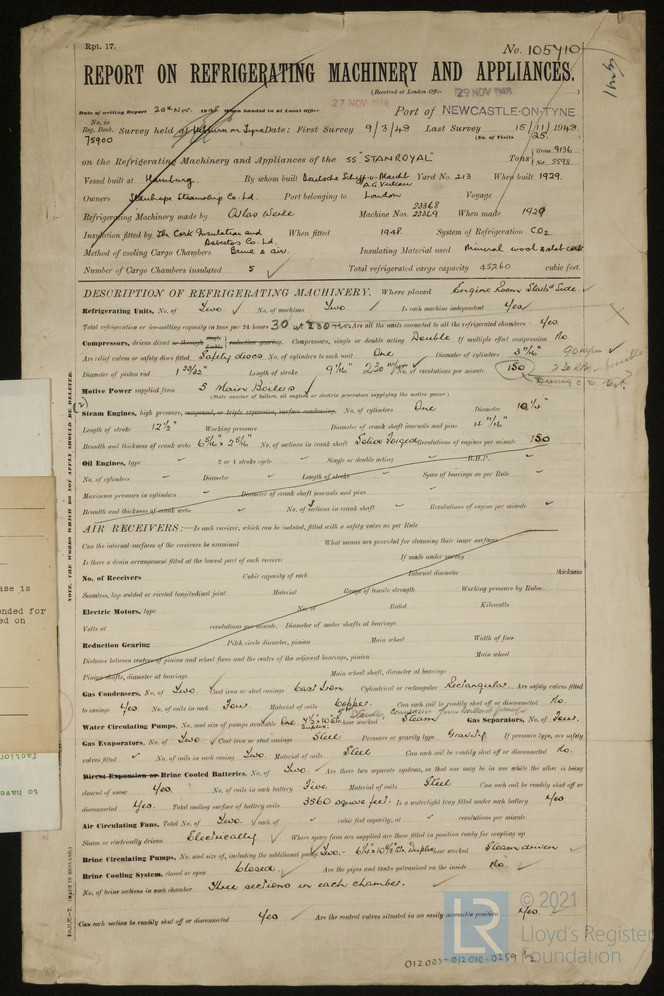 Rpt. 17.
No. 105710
REPORT ON REFRIGERATING MACHINERY AND APPLIANCES.
(Received at London Office 29 NOV 1948 )
27 NOV 1948
Date of writing Report 20th Nov. 1948 When handed in at Local Office Port of NEWCASTLE-ON-TYNE
No. in Reg. Book. Survey held at Hebburn on Tyne Date: First Survey 9/3/48 Last Survey 15/11/1948
75900 (No. of Visits 25.
on the Refrigerating Machinery and Appliances of the SS "STANROYAL" Tons Gross 9136 Net 5598
Vessel built at Hamburg. By whom built Deutsche Schiff-u-Maschf A.G. Vulcan Yard No. 213 When built 1929.
Owners Stanhope Steamship Co. Ltd. Port belonging to London Voyage
Refrigerating Machinery made by Atlas Werke Machine Nos. 23368 23369 When made 1929
Insulation fitted by The Cork Insulation and Asbestos Co. Ld. When fitted 1948. System of Refrigeration CO2.
Method of cooling Cargo Chambers Brine & air. Insulating Material used Mineral wool & slab cork
Number of Cargo Chambers insulated 5 Total refrigerated cargo capacity 45260 cubic feet.
DESCRIPTION OF REFRIGERATING MACHINERY. Where placed Engine Room Starbd Side.
Refrigerating Units, No. of Two. No. of machines Two Is each machine independent Yes
Total refrigeration or ice-making capacity in tons per 24 hours 30 Are all the units connected to all the refrigerated chambers Yes
Compressors, driven direct or through single double reduction gearing. Compressors, single or double acting Double If multiple effect compression No
Are relief valves or safety discs fitted Safety discs No. of cylinders to each unit One Diameter of cylinders 3 7/16"
Diameter of piston rod 1 23/32" Length of stroke 9 7/16" No. of revolutions per minute 150
Motive Power supplied from 5 Main Boilers
(State number of boilers, oil engines or electric generators supplying the motive power.)
Steam Engines, high pressure, compound, or triple expansion, surface condensing. No. of cylinders One Diameter 10 1/4"
Length of stroke 12 1/2" Working pressure Diameter of crank shaft journals and pins 4 11/16"
Breadth and thickness of crank webs 6 5/16" x 2 5/16" No. of sections in crank shaft Solid Forged Revolutions of engines per minute 150
Oil Engines, type 2 or 4 stroke cycle Single or double acting B.H.P.
No. of cylinders Diameter Length of stroke Span of bearings as per Rule
Maximum pressure in cylinders Diameter of crank shaft journals and pins
Breadth and thickness of crank webs No. of sections in crank shaft Revolutions of engine per minute
AIR RECEIVERS:—Is each receiver, which can be isolated, fitted with a safety valve as per Rule
Can the internal surfaces of the receivers be examined What means are provided for cleansing their inner surfaces
Is there a drain arrangement fitted at the lowest part of each receiver If made under survey
No. of Receivers Cubic capacity of each Internal diameter thickness
Seamless, lap welded or riveted longitudinal joint Material Range of tensile strength Working pressure by Rules
Electric Motors, type No. of Rated Kilowatts
Volts at revolutions per minute. Diameter of motor shafts at bearings
Reduction Gearing Pitch circle diameter, pinion Main wheel Width of face
Distance between centres of pinion and wheel faces and the centre of the adjacent bearings, pinion Main wheel
Pinion shafts, diameter at bearings Main wheel shaft, diameter at bearings
Gas Condensers, No. of Two Cast iron or steel casings Cast Iron Cylindrical or rectangular Rectangular. Are safety valves fitted
to casings Yes No. of coils in each Four. Material of coils Copper. Can each coil be readily shut off or disconnected No.
Water Circulating Pumps, No. and size of pumps available One how worked Steam Gas Separators, No. of Four.
Gas Evaporators, No. of Two Cast iron or steel casings Steel Pressure or gravity type Gravity If pressure type, are safety
valves fitted No. of coils in each casing Two. Material of coils Steel Can each coil be readily shut off or disconnected No.
Direct Expansion or Brine Cooled Batteries, No. of Two. Are there two separate systems, so that one may be in use while the other is being
cleared of snow Yes. No. of coils in each battery Five Material of coils Steel Can each coil be readily shut off or
disconnected Yes. Total cooling surface of battery coils 3560 square feet. Is a watertight tray fitted under each battery Yes
Air Circulating Fans, Total No. of Two. each of cubic feet capacity, at revolutions per minute
Steam or electrically driven Electrically Where spare fans are supplied are these fitted in position ready for coupling up
Brine Circulating Pumps, No. and size of, including the additional pump Two.- Duplex how worked Steam driven
Brine Cooling System, closed or open Closed. Are the pipes and tanks galvanised on the inside No.
No. of brine sections in each chamber Three sections in each chamber.
Can each section be readily shut off or disconnected Yes Are the control valves situated in an easily accessible position Yes.
NOTE. THE WORDS WHICH DO NOT APPLY SHOULD BE DELETED.
(MADE IN ENGLAND.)
ase is
ended for
ed on
faction
to have
© 2021
LR Lloyd's Register
Foundation
012003-012010-0259 1/2